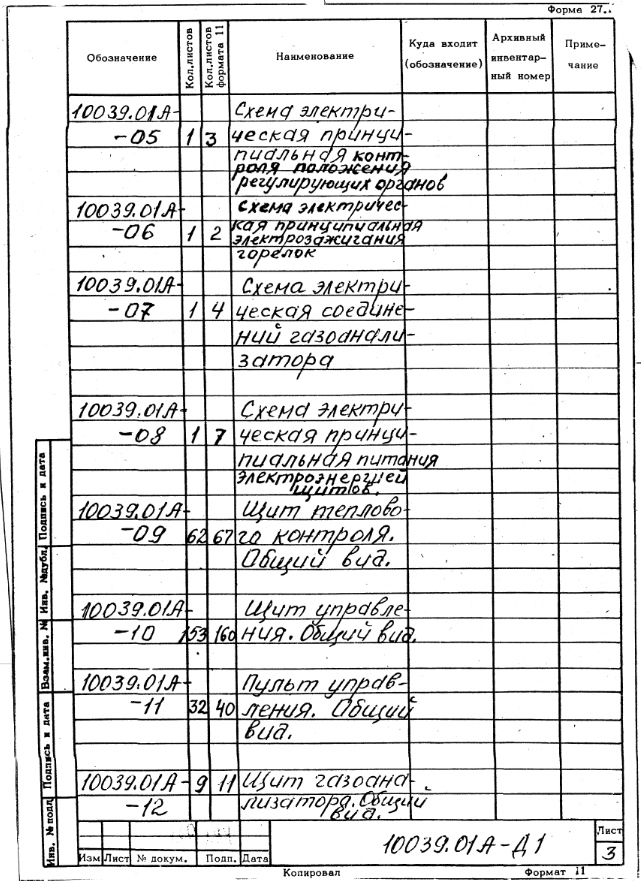 Форма 27..
Обозначение Кол.листов Кол.листов формата 11 Наименование Куда входит (обозначение) Архивный инвентар- ный номер Приме- чание
10039.01А- Схема электри-
-05 1 3 ческая принци-
пиальная конт-
роля положения
регулирующих органов
10039.01А- Схема электричес-
-06 1 2 кая принципиальная
электрозажигания
горелок
10039.01А- Схема электри-
-07 1 4 ческая соедине-
ний газоанали-
затора
10039.01А- Схема электри-
-08 1 7 ческая принци-
пиальная питания
электроэнергией
щитов.
10039.01А- Щит теплово-
-09 62 67 го контроля.
Общий вид.
10039.01А- Щит управле-
-10 153 160 ния. Общий вид.
10039.01А- Пульт управ-
-11 32 40 ления. Общий
вид.
10039.01А- 9 11 Щит газоана-
-12 лизатора. Общий
вид.
Инв. № подл Подпись и дата Взам.инв. № Инв. №дубл. Подпись и дата
10039.01А-Д1
Лист
3
Изм Лист № докум. Подп. Дата
Копировал Формат 11